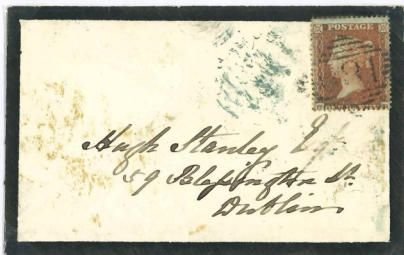 POSTAGE
Hugh Stanley Esq
59 Blessington St.
Dublin